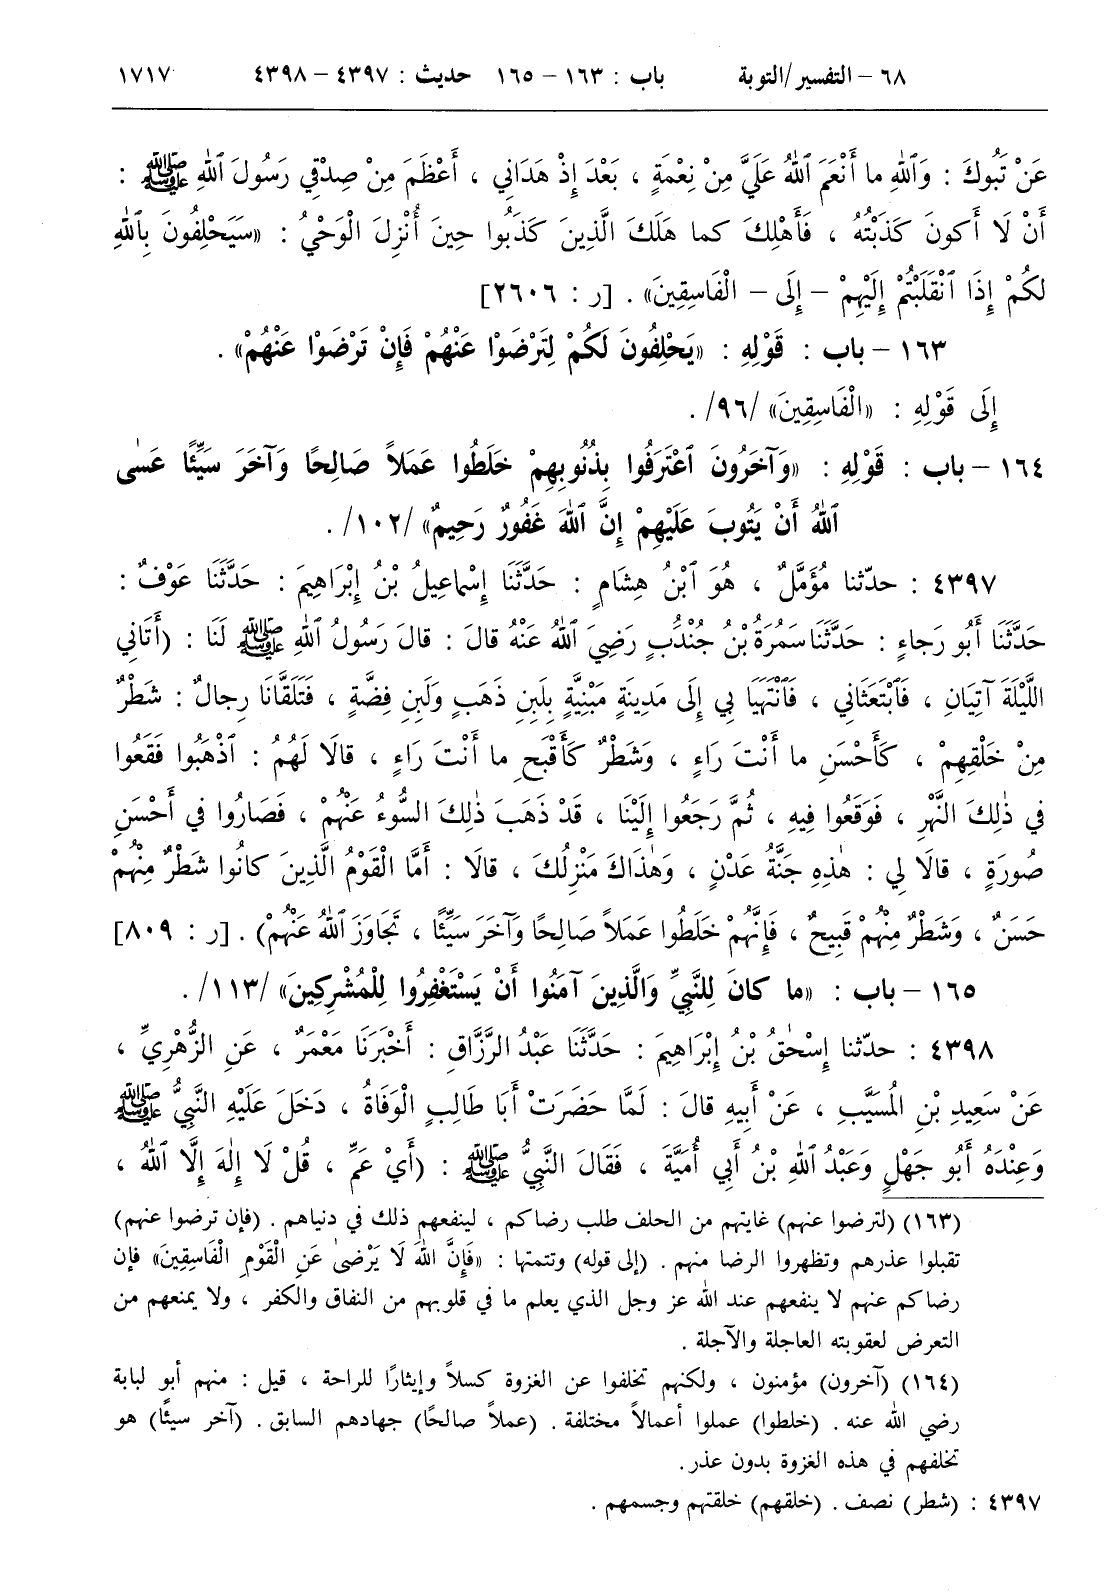 ٦٨ – التفسير/التوبة باب : ١٦٣ – ١٦٥ حديث : ٤٣٩٧ – ٤٣٩٨ ١٧١٧
عَنْ تَبُوكَ : وَٱللهِ ما أَنْعَمَ ٱللهُ عَلَيَّ مِنْ نِعْمَةٍ ، بَعْدَ إِذْ هَدَانِي ، أَعْظَمَ مِنْ صِدْقِي رَسُولَ ٱللهِ ﷺ :
أَنْ لَا أَكونَ كَذَبْتُهُ ، فَأَهْلِكَ كما هَلَكَ الَّذِينَ كَذَبُوا حِينَ أُنْزِلَ الْوَحْيُ : «سَيَحْلِفُونَ بِٱللهِ
لكُمْ إِذَا ٱنْقَلَبْتُمْ إِلَيْهِمْ – إِلَى – الْفَاسِقِينَ» . [ر : ٢٦٠٦]
١٦٣ – باب : قَوْلِهِ : «يَحْلِفُونَ لَكُمْ لِتَرْضَوْا عَنْهُمْ فَإِنْ تَرْضَوْا عَنْهُمْ» .
إِلَى قَوْلِهِ : «الْفَاسِقِينَ» /٩٦/ .
١٦٤ – باب : قَوْلِهِ : «وَآخَرُونَ ٱعْتَرَفُوا بِذُنُوبِهِمْ خَلَطُوا عَمَلاً صَالِحًا وَآخَرَ سَيِّئًا عَسٰى
ٱللهُ أَنْ يَتُوبَ عَلَيْهِمْ إِنَّ ٱللهَ غَفُورٌ رَحِيمٌ» /١٠٢/ .
٤٣٩٧ : حدّثنا مُؤَمَّلٌ ، هُوَ ٱبْنُ هِشَامٍ : حَدَّثَنَا إِسْماعِيلُ بْنُ إِبْرَاهِيمَ : حَدَّثَنَا عَوْفٌ :
حَدَّثَنَا أَبُو رَجاءٍ : حَدَّثَنَا سَمُرَةُ بْنُ جُنْدُبٍ رَضِيَ ٱللهُ عَنْهُ قالَ : قالَ رَسُولُ ٱللهِ ﷺ لَنَا : (أَتَانِي
اللَّيْلَةَ آتِيَانِ ، فَٱبْتَعَثَانِي ، فَٱنْتَهَيَا بِي إِلَى مَدِينَةٍ مَبْنِيَّةٍ بِلَبِنِ ذَهَبٍ وَلَبِنِ فِضَّةٍ ، فَتَلَقَّانَا رِجالٌ : شَطْرٌ
مِنْ خَلْقِهِمْ ، كَأَحْسَنِ ما أَنْتَ رَاءٍ ، وَشَطْرٌ كَأَقْبَحِ ما أَنْتَ رَاءٍ ، قالَا لَهُمُ : ٱذْهَبُوا فَقَعُوا
في ذٰلِكَ النَّهْرِ ، فَوَقَعُوا فِيهِ ، ثُمَّ رَجَعُوا إِلَيْنَا ، قَدْ ذَهَبَ ذٰلِكَ السُّوءُ عَنْهُمْ ، فَصَارُوا في أَحْسَنِ
صُورَةٍ ، قالَا لِي : هٰذِهِ جَنَّةُ عَدْنٍ ، وَهٰذَاكَ مَنْزِلُكَ ، قالَا : أَمَّا الْقَوْمُ الَّذِينَ كانُوا شَطْرٌ مِنْهُمْ
حَسَنٌ ، وَشَطْرٌ مِنْهُمْ قَبِيحٌ ، فَإِنَّهُمْ خَلَطُوا عَمَلاً صَالِحًا وَآخَرَ سَيِّئًا ، تَجَاوَزَ ٱللهُ عَنْهُمْ) . [ر : ٨٠٩]
١٦٥ – باب : «ما كانَ لِلنَّبِيِّ وَالَّذِينَ آمَنُوا أَنْ يَسْتَغْفِرُوا لِلْمُشْرِكِينَ» /١١٣/ .
٤٣٩٨ : حدّثنا إِسْحٰقُ بْنُ إِبْرَاهِيمَ : حَدَّثَنَا عَبْدُ الرَّزَّاقِ : أَخْبَرَنَا مَعْمَرٌ ، عَنِ الزُّهْرِيِّ ،
عَنْ سَعِيدِ بْنِ الْمُسَيَّبِ ، عَنْ أَبِيهِ قالَ : لَمَّا حَضَرَتْ أَبَا طَالِبٍ الْوَفَاةُ ، دَخَلَ عَلَيْهِ النَّبِيُّ ﷺ
وَعِنْدَهُ أَبُو جَهْلٍ وَعَبْدُ ٱللهِ بْنُ أَبِي أُمَيَّةَ ، فَقَالَ النَّبِيُّ ﷺ : (أَيْ عَمِّ ، قُلْ لَا إِلٰهَ إِلَّا ٱللهُ ،
(١٦٣) (لترضوا عنهم) غايتهم من الحلف طلب رضاكم ، لينفعهم ذلك في دنياهم . (فإن ترضوا عنهم)
تقبلوا عذرهم وتظهروا الرضا منهم . (إلى قوله) وتتمتها : «فَإِنَّ اللهَ لَا يَرْضىٰ عَنِ الْقَوْمِ الْفَاسِقِينَ» فإن
رضاكم عنهم لا ينفعهم عند الله عز وجل الذي يعلم ما في قلوبهم من النفاق والكفر ، ولا يمنعهم من
التعرض لعقوبته العاجلة والآجلة .
(١٦٤) (آخرون) مؤمنون ، ولكنهم تخلفوا عن الغزوة كسلاً وإيثارًا للراحة ، قيل : منهم أبو لبابة
رضي الله عنه . (خلطوا) عملوا أعمالاً مختلفة . (عملاً صالحًا) جهادهم السابق . (آخر سيئًا) هو
تخلفهم في هذه الغزوة بدون عذر.
٤٣٩٧ : (شطر) نصف . (خلقهم) خلقتهم وجسمهم .